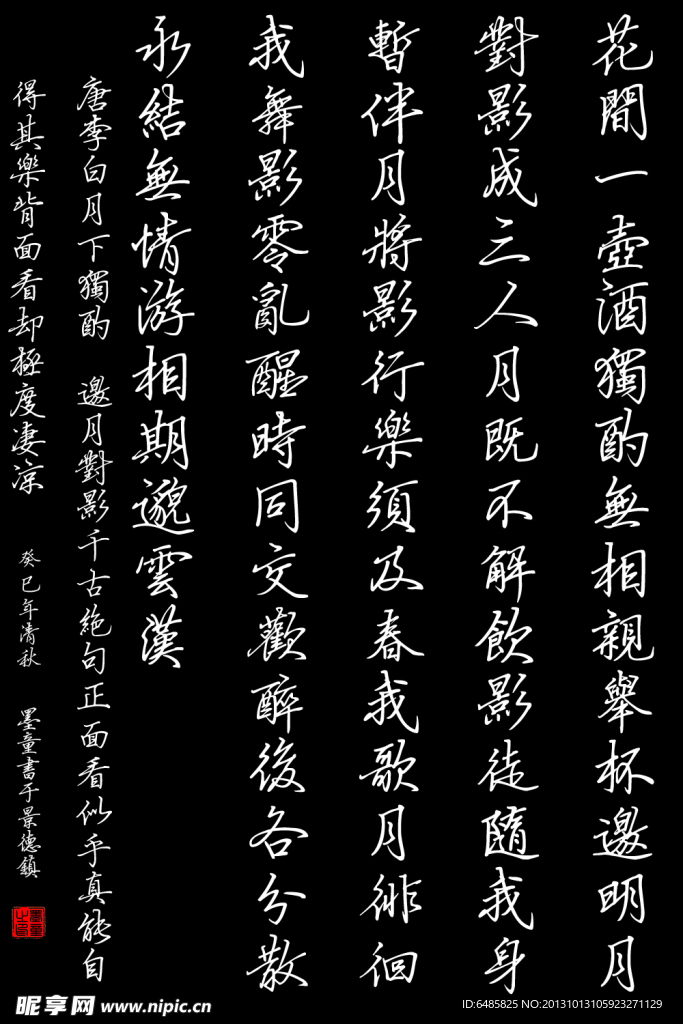 花間一壺酒獨酌無相親舉杯邀明月
對影成三人月既不解飲影徒隨我身
暫伴月將影行樂須及春我歌月徘徊
我舞影零亂醒時同交歡醉後各分散
永結無情游相期邈雲漢
唐李白月下獨酌 邀月對影千古絕句正面看似乎真能自
得其樂背面看却極度凄凉 癸巳年清秋 墨童書于景德鎮
昵享网 www.nipic.cn
ID:6485825 NO:20131013105923271129